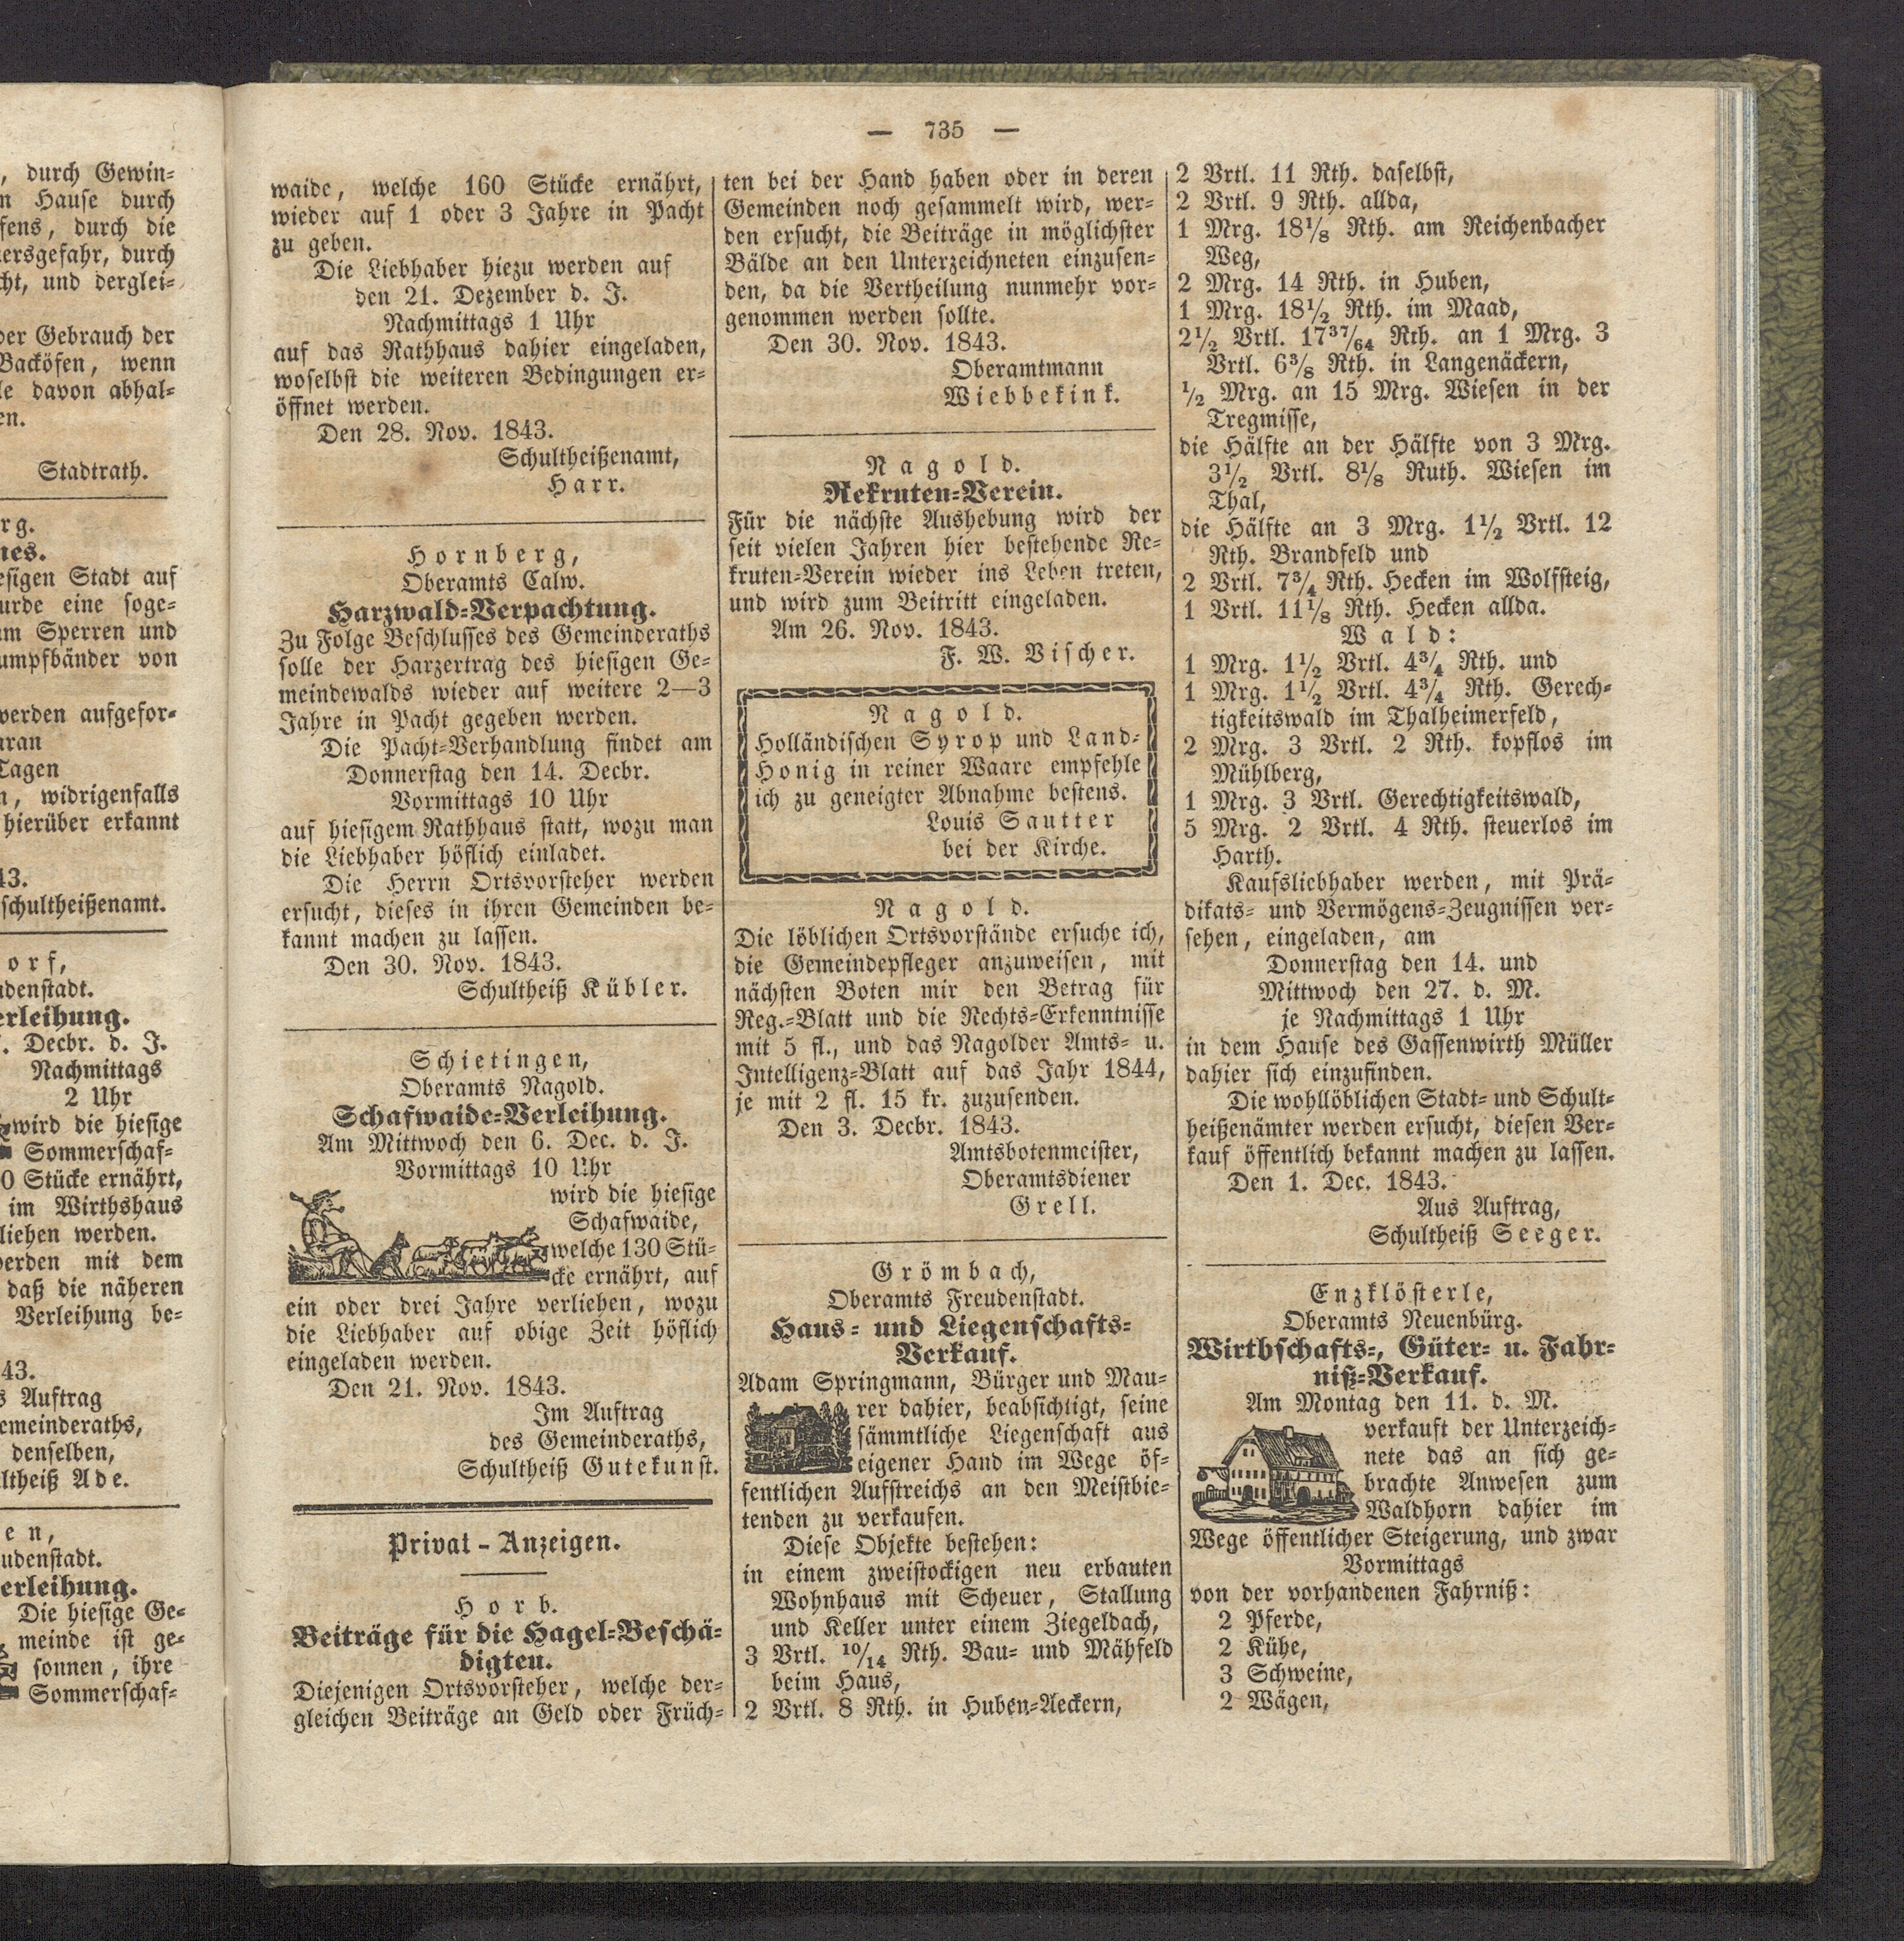 , durch Gewin-
n Hause durch
fens, durch die
ersgefahr, durch
cht, und derglei-
der Gebrauch der
Backöfen, wenn
le davon abhal-
en.
Stadtrath.
rg.
nes.
esigen Stadt auf
urde eine soge-
um Sperren und
umpfbänder von
werden aufgefor-
aran
Tagen
n, widrigenfalls
hierüber erkannt
43.
schultheißenamt.
orf,
udenstadt.
erleihung.
. Decbr. d. J.
Nachmittags
2 Uhr
wird die hiesige
Sommerschaf-
0 Stücke ernährt,
im Wirthshaus
liehen werden.
werden mit dem
daß die näheren
Verleihung be-
43.
s Auftrag
emeinderaths,
denselben,
ltheiß Ade.
en,
udenstadt.
erleihung.
Die hiesige Ge-
meinde ist ge-
sonnen, ihre
Sommerschaf-
— 735 —
waide, welche 160 Stücke ernährt,
wieder auf 1 oder 3 Jahre in Pacht
zu geben.
Die Liebhaber hiezu werden auf
den 21. Dezember d. J.
Nachmittags 1 Uhr
auf das Rathhaus dahier eingeladen,
woselbst die weiteren Bedingungen er-
öffnet werden.
Den 28. Nov. 1843.
Schultheißenamt,
Harr.
Hornberg,
Oberamts Calw.
Harzwald-Verpachtung.
Zu Folge Beschlusses des Gemeinderaths
solle der Harzertrag des hiesigen Ge-
meindewalds wieder auf weitere 2—3
Jahre in Pacht gegeben werden.
Die Pacht-Verhandlung findet am
Donnerstag den 14. Decbr.
Vormittags 10 Uhr
auf hiesigem Rathhaus statt, wozu man
die Liebhaber höflich einladet.
Die Herrn Ortsvorsteher werden
ersucht, dieses in ihren Gemeinden be-
kannt machen zu lassen.
Den 30. Nov. 1843.
Schultheiß Kübler.
Schietingen,
Oberamts Nagold.
Schafwaide-Verleihung.
Am Mittwoch den 6. Dec. d. J.
Vormittags 10 Uhr
wird die hiesige
Schafwaide,
welche 130 Stü-
cke ernährt, auf
ein oder drei Jahre verliehen, wozu
die Liebhaber auf obige Zeit höflich
eingeladen werden.
Den 21. Nov. 1843.
Im Auftrag
des Gemeinderaths,
Schultheiß Gutekunst.
Privat-Anzeigen.
Horb.
Beiträge für die Hagel-Beschä-
digten.
Diejenigen Ortsvorsteher, welche der-
gleichen Beiträge an Geld oder Früch-
ten bei der Hand haben oder in deren
Gemeinden noch gesammelt wird, wer-
den ersucht, die Beiträge in möglichster
Bälde an den Unterzeichneten einzusen-
den, da die Vertheilung nunmehr vor-
genommen werden sollte.
Den 30. Nov. 1843.
Oberamtmann
Wiebbekink.
Nagold.
Rekruten-Verein.
Für die nächste Aushebung wird der
seit vielen Jahren hier bestehende Re-
kruten-Verein wieder ins Leben treten,
und wird zum Beitritt eingeladen.
Am 26. Nov. 1843.
F. W. Vischer.
Nagold.
Holländischen Syrop und Land-
Honig in reiner Waare empfehle
ich zu geneigter Abnahme bestens.
Louis Sautter
bei der Kirche.
Nagold.
Die löblichen Ortsvorstände ersuche ich,
die Gemeindepfleger anzuweisen, mit
nächsten Boten mir den Betrag für
Reg.-Blatt und die Rechts-Erkenntnisse
mit 5 fl., und das Nagolder Amts- u.
Intelligenz-Blatt auf das Jahr 1844,
je mit 2 fl. 15 kr. zuzusenden.
Den 3. Decbr. 1843.
Amtsbotenmeister,
Oberamtsdiener
Grell.
Grömbach,
Oberamts Freudenstadt.
Haus- und Liegenschafts-
Verkauf.
Adam Springmann, Bürger und Mau-
rer dahier, beabsichtigt, seine
sämmtliche Liegenschaft aus
eigener Hand im Wege öf-
fentlichen Aufstreichs an den Meistbie-
tenden zu verkaufen.
Diese Objekte bestehen:
in einem zweistockigen neu erbauten
Wohnhaus mit Scheuer, Stallung
und Keller unter einem Ziegeldach,
3 Vrtl. 10/14 Rth. Bau- und Mähfeld
beim Haus,
2 Vrtl. 8 Rth. in Huben-Aeckern,
2 Vrtl. 11 Rth. daselbst,
2 Vrtl. 9 Rth. allda,
1 Mrg. 18 1/8 Rth. am Reichenbacher
Weg,
2 Mrg. 14 Rth. in Huben,
1 Mrg. 18 1/2 Rth. im Maad,
2 1/2 Vrtl. 17 37/64 Rth. an 1 Mrg. 3
Vrtl. 6 3/8 Rth. in Langenäckern,
1/2 Mrg. an 15 Mrg. Wiesen in der
Tregmisse,
die Hälfte an der Hälfte von 3 Mrg.
3 1/2 Vrtl. 8 1/8 Ruth. Wiesen im
Thal,
die Hälfte an 3 Mrg. 1 1/2 Vrtl. 12
Rth. Brandfeld und
2 Vrtl. 7 3/4 Rth. Hecken im Wolfsteig,
1 Vrtl. 11 1/8 Rth. Hecken allda.
Wald:
1 Mrg. 1 1/2 Vrtl. 4 3/4 Rth. und
1 Mrg. 1 1/2 Vrtl. 4 3/4 Rth. Gerech-
tigkeitswald im Thalheimerfeld,
2 Mrg. 3 Vrtl. 2 Rth. kopflos im
Mühlberg,
1 Mrg. 3 Vrtl. Gerechtigkeitswald,
5 Mrg. 2 Vrtl. 4 Rth. steuerlos im
Harth.
Kaufsliebhaber werden, mit Prä-
dikats- und Vermögens-Zeugnissen ver-
sehen, eingeladen, am
Donnerstag den 14. und
Mittwoch den 27. d. M.
je Nachmittags 1 Uhr
in dem Hause des Gassenwirth Müller
dahier sich einzufinden.
Die wohllöblichen Stadt- und Schult-
heißenämter werden ersucht, diesen Ver-
kauf öffentlich bekannt machen zu lassen.
Den 1. Dec. 1843.
Aus Auftrag,
Schultheiß Seeger.
Enzklösterle,
Oberamts Neuenbürg.
Wirthschafts-, Güter- u. Fahr-
niß-Verkauf.
Am Montag den 11. d. M.
verkauft der Unterzeich-
nete das an sich ge-
brachte Anwesen zum
Waldhorn dahier im
Wege öffentlicher Steigerung, und zwar
Vormittags
von der vorhandenen Fahrniß:
2 Pferde,
2 Kühe,
3 Schweine,
2 Wägen,